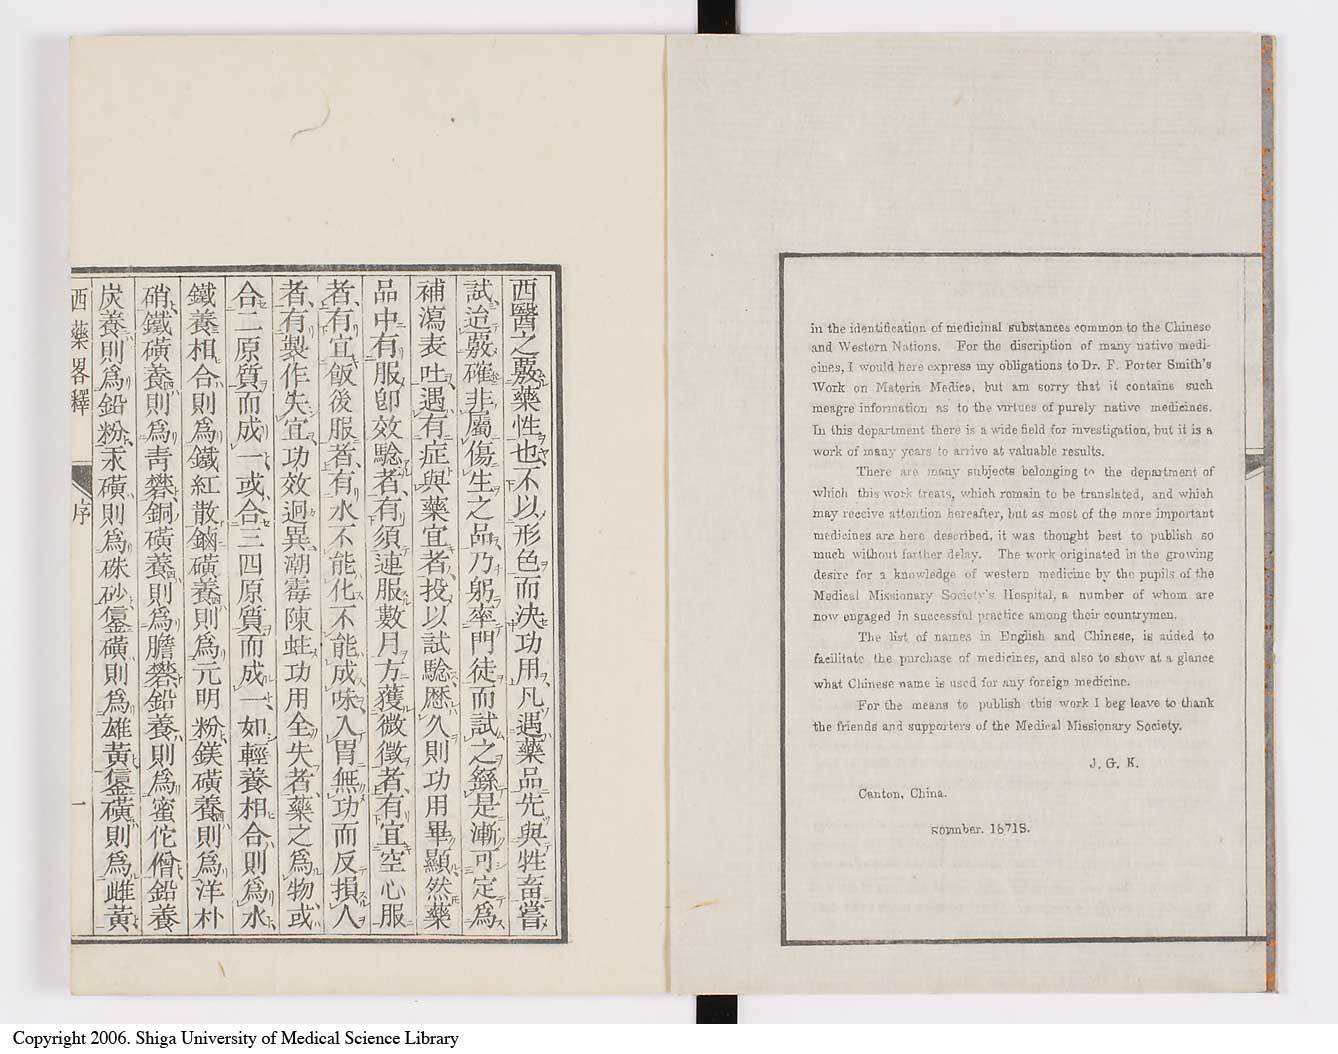 in the identification of medicinal substances common to the Chinese
and Western Nations. For the discription of many native medi-
cines, I would here express my obligations to Dr. F. Porter Smith's
Work on Materia Medica, but am sorry that it contains such
meagre information as to the virtues of purely native medicines.
In this department there is a wide field for investigation, but it is a
work of many years to arrive at valuable results.
There are many subjects belonging to the department of
which this work treats, which remain to be translated, and which
may receive attention hereafter, but as most of the more important
medicines are here described, it was thought best to publish so
much without farther delay. The work originated in the growing
desire for a knowledge of western medicine by the pupils of the
Medical Missionary Society's Hospital, a number of whom are
now engaged in successful practice among their countrymen.
The list of names in English and Chinese, is added to
facilitate the purchase of medicines, and also to show at a glance
what Chinese name is used for any foreign medicine.
For the means to publish this work I beg leave to thank
the friends and supporters of the Medical Missionary Society.
J. G. K.
Canton, China.
西醫之覈藥性也不以形色而決功用凡遇藥品先與牲畜嘗
試迨覈確非屬傷生之品乃躬率門徒而試之繇是漸可定爲
補瀉表吐遇有症與藥宜者投以試驗歷久則功用畢顯然藥
品中有服卽效驗者有須連服數月方獲微徵者有宜空心服
者有宜飯後服者有水不能化不能成味入胃無功而反損人
者有製作失宜功效迥異潮霉陳蛀功用全失者藥之爲物或
合二原質而成一或合三四原質而成一如輕養相合則爲水
鐵養相合則爲鐵紅散鏀磺養則爲元明粉鎂磺養則爲洋朴
硝鐵磺養則爲靑礬銅磺養則爲膽礬鉛養則爲蜜佗僧鉛養
炭養則爲鉛粉汞磺則爲硃砂𨥙磺則爲雄黃𨥙磺則爲雌黃
西藥畧釋
序
一
Copyright 2006. Shiga University of Medical Science Library